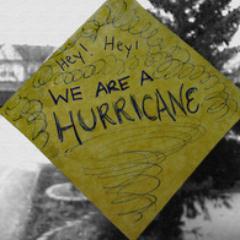 Hey! Hey!
WE ARE A
HURRICANE